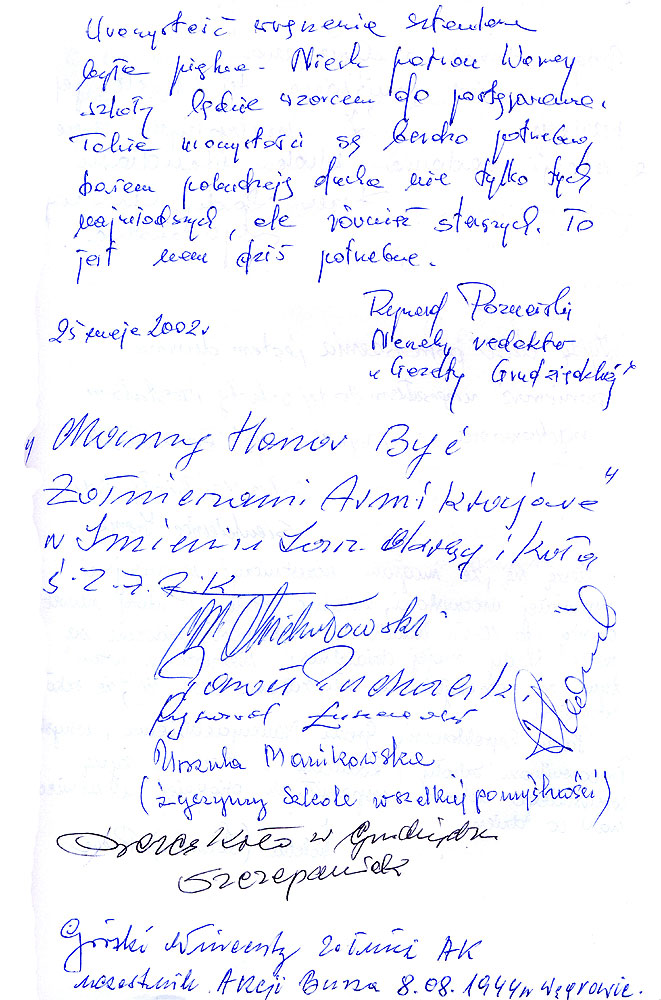 Uroczystość wręczenia sztandaru
była piękna. Niech patron Waszej
szkoły będzie wzorcem do postępowania.
Takie uroczystości są bardzo potrzebne,
bowiem pobudzają ducha nie tylko tych
najmłodszych, ale również starszych. To
jest nam dziś potrzebne.
25 maja 2002 r
Ryszard
redaktor
„Gazety Grudziądzkiej"
„Mamy Honor Być
Żołnierzami Armi Krajowej"
w Imieniu i Koła
Ś.Z.Ż.A.K
Michałowski
Ryszard
Urszula Mańkowska
(życzymy Szkole wszelkiej pomyślności)
Prezes Koła w Grudziądzu
Szczepaniak
Górski Wincenty Żołnierz AK
uczestnik Akcji Burza 8.08.1944 w Węgrowie.